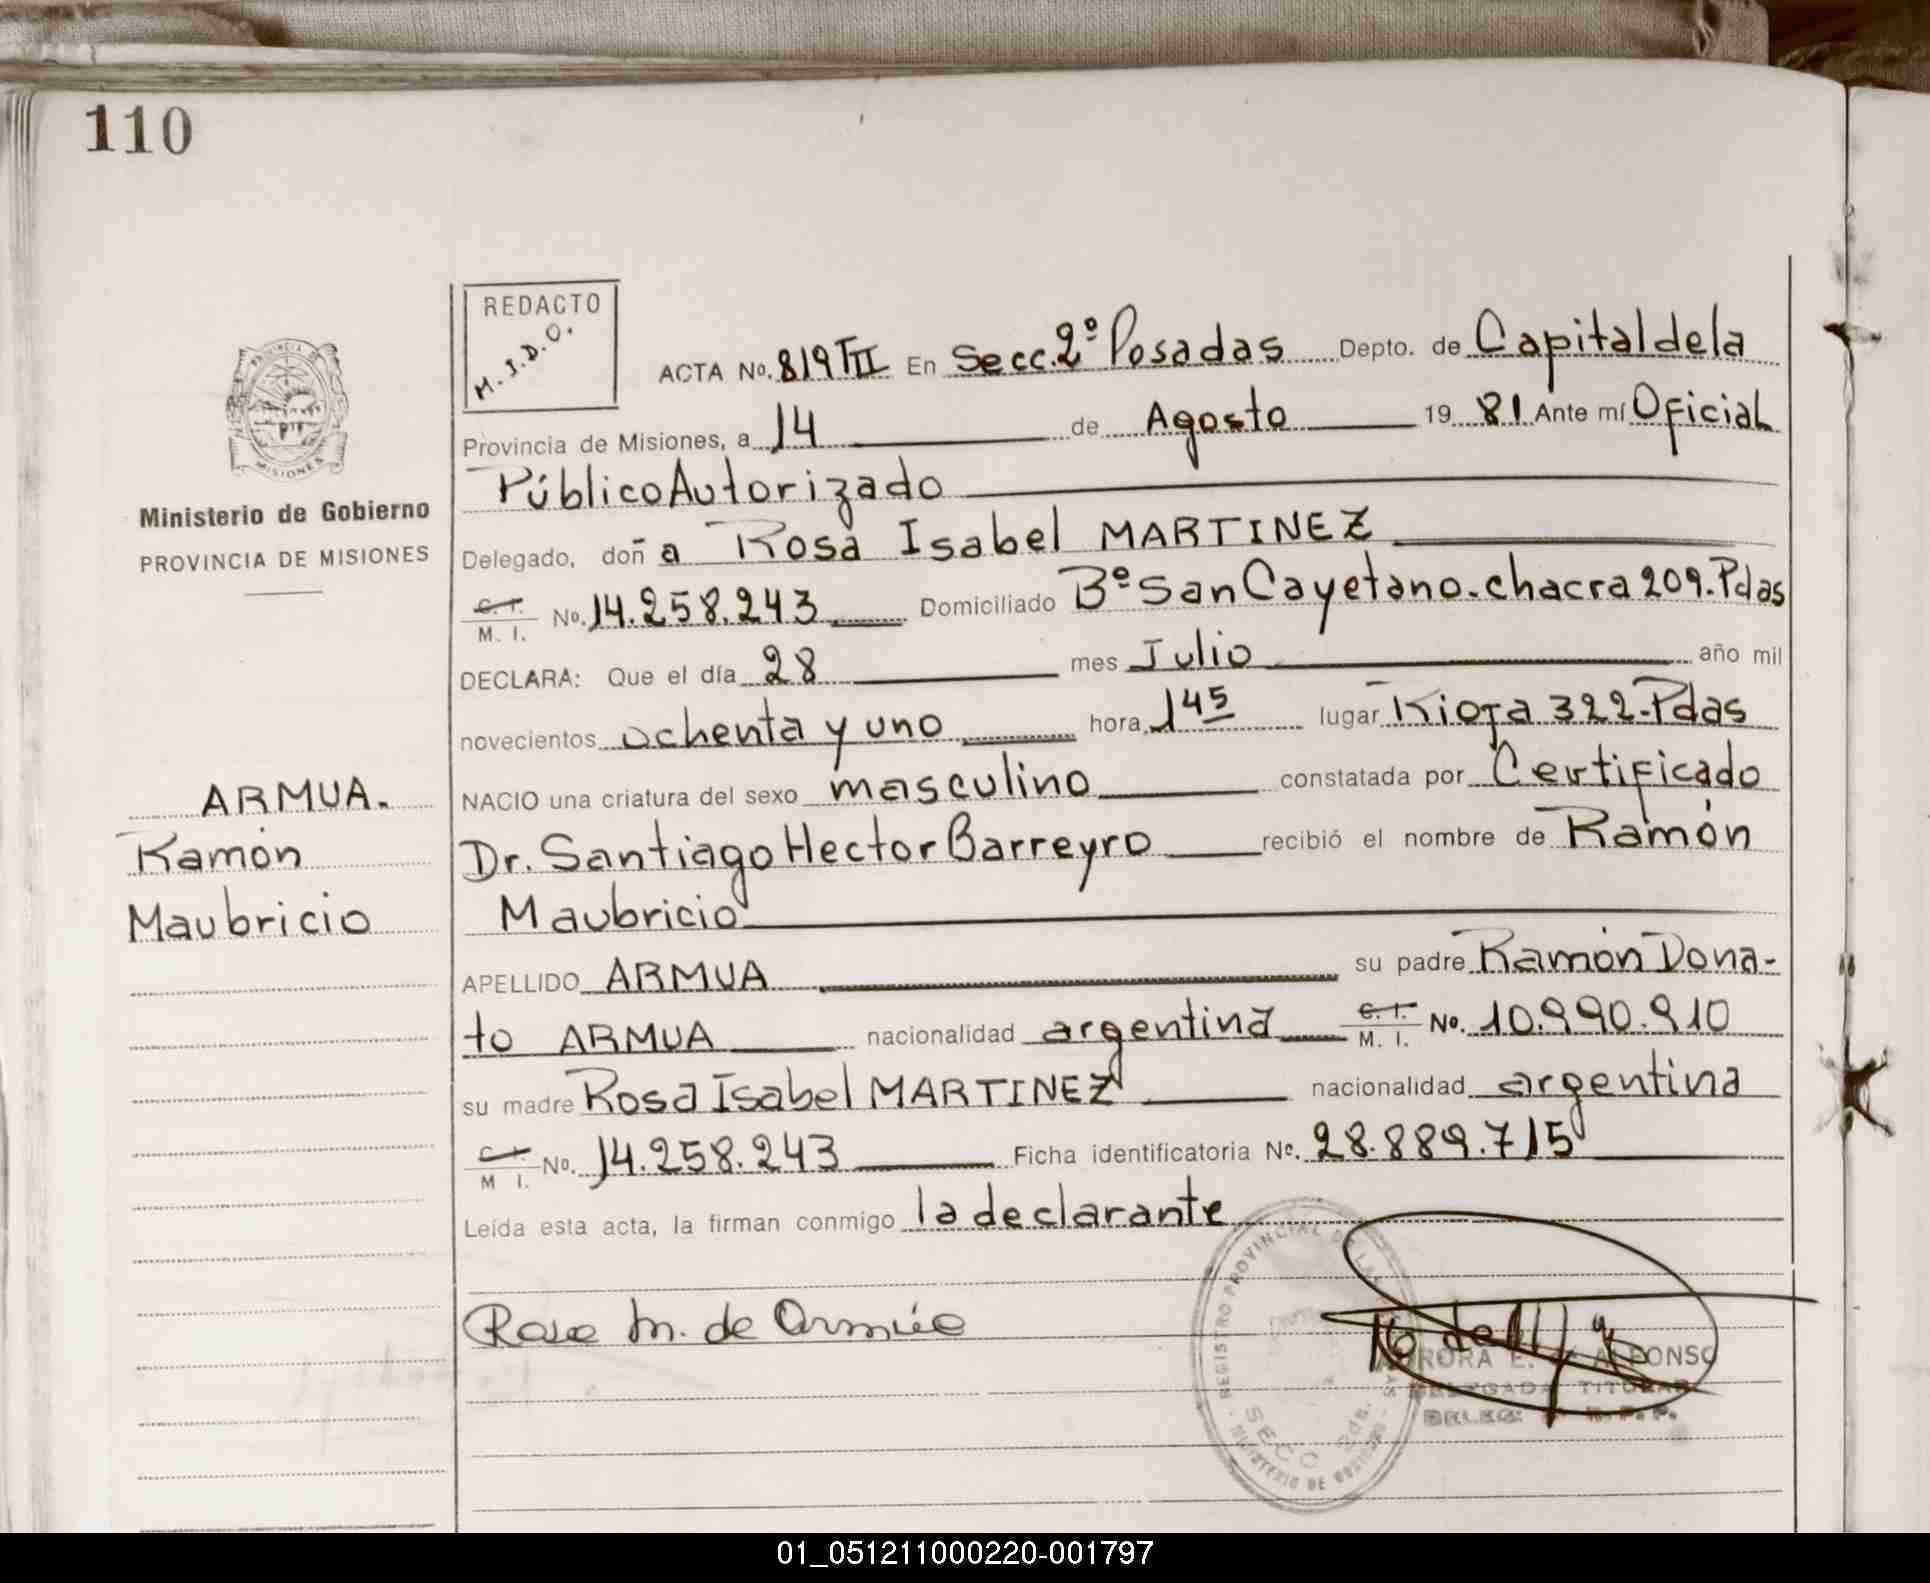 110
REDACTO
M.J.D.O.
ACTA No. 819 TII En Secc. 2º Posadas Depto. de Capital de la
Provincia de Misiones, a 14 de Agosto 19 81 Ante mí Oficial
Público Autorizado
Delegado, doñ a Rosa Isabel MARTINEZ
C. I.
M. I. No. 14.258.243 Domiciliado Bº San Cayetano. chacra 209. Pdas
DECLARA: Que el día 28 mes Julio año mil
novecientos ochenta y uno hora 1 45 lugar Rioja 322-Pdas
NACIO una criatura del sexo masculino constatada por Certificado
Dr. Santiago Hector Barreyro recibió el nombre de Ramón
Maubricio
APELLIDO ARMUA su padre Ramón Dona-
to ARMUA nacionalidad argentina C. I. M. I. No. 10.990.910
su madre Rosa Isabel MARTINEZ nacionalidad argentina
M I. No. 14.258.243 Ficha identificatoria No. 28.889.715
Leída esta acta, la firman conmigo la declarante
Rosa M. de Armúa
MISIONES
Ministerio de Gobierno
PROVINCIA DE MISIONES
ARMUA.
Ramón
Maubricio
REGISTRO PROVINCIAL DE LAS
AURORA E. ALFONSO
DELEGADA TITULAR
01_051211000220-001797